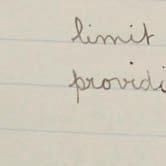 limit
providi